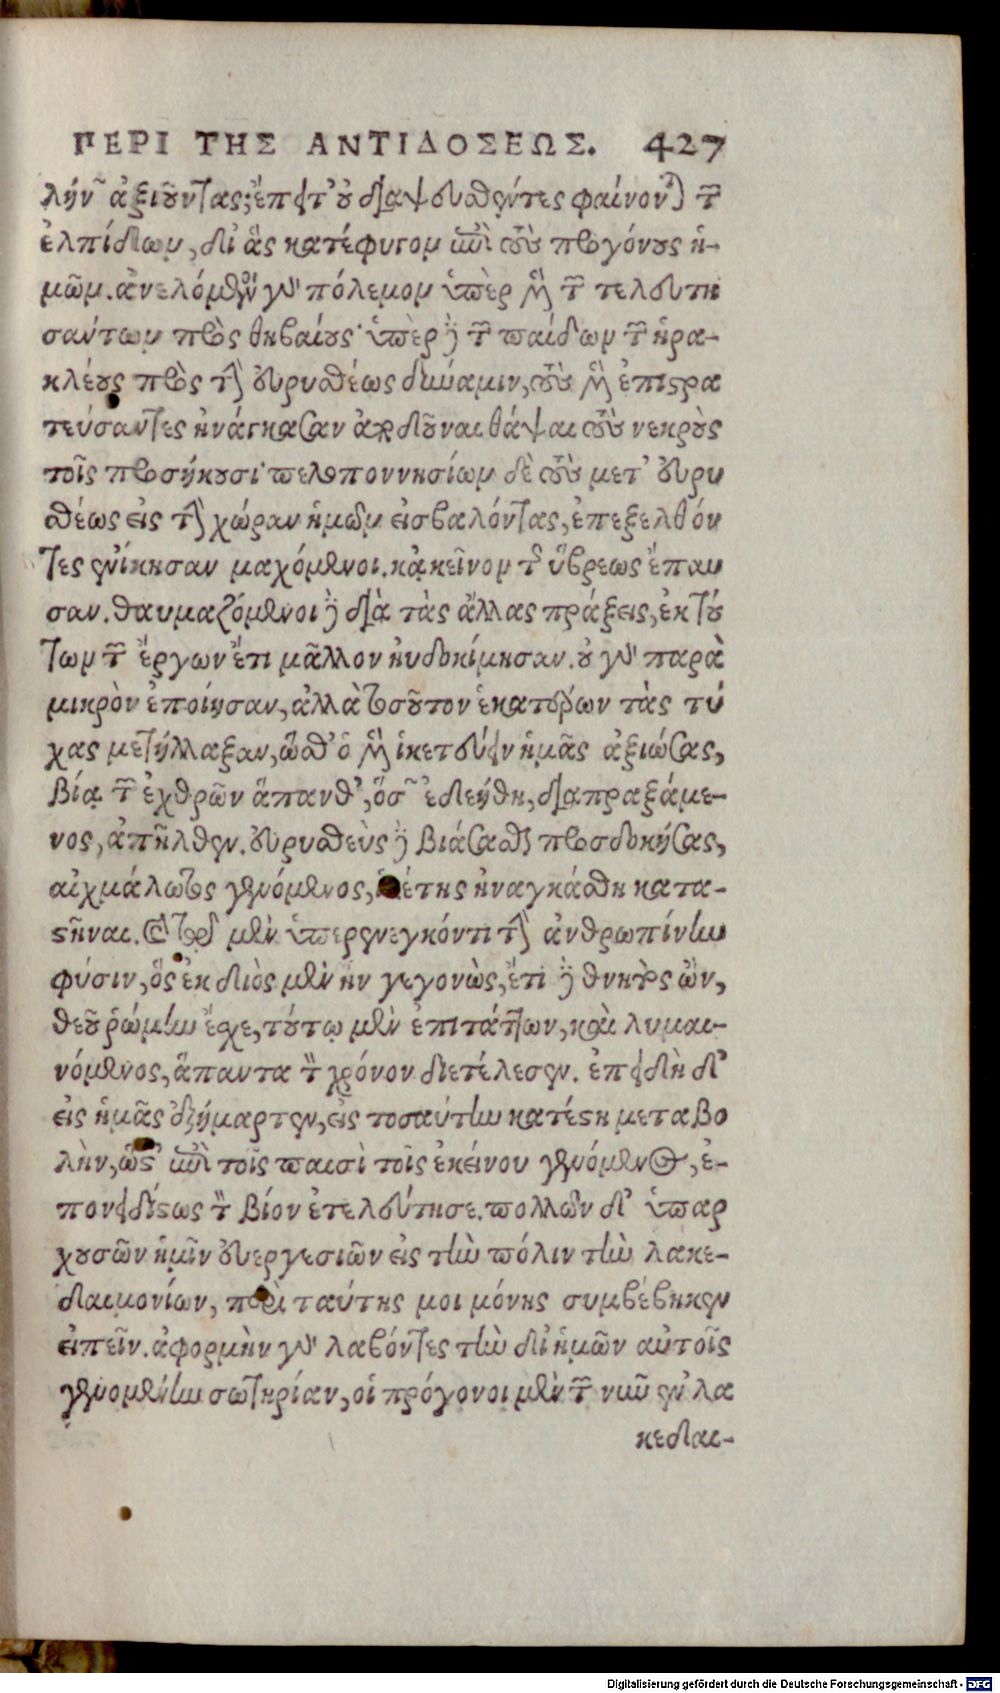 ΠΕΡΙ ΤΗΣ ΑΝΤΙΔΟΣΕΩΣ. 427
λήν τ' ἀξιοῦντας; ἔπειτ' οὐ διαψευσθέντες φαίνονται τῶν
ἐλπίδων, δι' ἃς κατέφυγον ἐπὶ τοὺς προγόνους ἡ-
μῶν. ἀνελόμενοι γὰρ πόλεμον ὑπὲρ μὲν τῶν τελευτη
σάντων πρὸς θηβαίους· ὑπὲρ δὲ τῶν παίδων τῶν ἡρα-
κλέους πρὸς τὴν εὐρυσθέως δύναμιν, τοὺς μὲν ἐπιστρα
τεύσαντες ἠνάγκασαν ἀποδοῦναι θάψαι τοὺς νεκροὺς
τοῖς προσήκουσι· πελοποννησίων δὲ τοὺς μετ' εὐρυ
σθέως εἰς τὴν χώραν ἡμῶν εἰσβαλόντας, ἐπεξελθόν
τες ἐνίκησαν μαχόμενοι. κἀκεῖνον τῆς ὕβρεως ἔπαυ
σαν. θαυμαζόμενοι δὲ διὰ τὰς ἄλλας πράξεις, ἐκ τού
των τῶν ἔργων ἔτι μᾶλλον ηὐδοκίμησαν. οὐ γὰρ παρὰ
μικρὸν ἐποίησαν, ἀλλὰ τοσοῦτον ἑκατέρων τὰς τύ
χας μετήλλαξαν, ὥσθ' ὁ μὲν ἱκετεύειν ἡμᾶς ἀξιώσας,
βίᾳ τῶν ἐχθρῶν ἅπανθ', ὅσων ἐδεήθη, διαπραξάμε-
νος, ἀπῆλθεν. εὐρυσθεὺς δὲ βιάσασθαι προσδοκήσας,
αἰχμάλωτος γενόμενος, ἱκέτης ἠναγκάσθη κατα-
στῆναι. καὶ τῷ μὲν ὑπερενεγκόντι τὴν ἀνθρωπίνην
φύσιν, ὃς ἐκ διὸς μὲν ἦν γεγονὼς, ἔτι δὲ θνητὸς ὢν,
θεοῦ ῥώμην ἔσχε, τούτῳ μὲν ἐπιτάττων, καὶ λυμαι-
νόμενος, ἅπαντα τὸν χρόνον διετέλεσεν. ἐπειδὴ δ'
εἰς ἡμᾶς ἐξήμαρτεν, εἰς τοσαύτην κατέστη μεταβο
λὴν, ὥστ' ἐπὶ τοῖς παισὶ τοῖς ἐκείνου γενόμενος, ἐ-
πονειδίστως τὸν βίον ἐτελεύτησε. πολλῶν δ' ὑπαρ
χουσῶν ἡμῖν εὐεργεσιῶν εἰς τὴν πόλιν τὴν λακε-
δαιμονίων, περὶ ταύτης μοι μόνης συμβέβηκεν
εἰπεῖν. ἀφορμὴν γὰρ λαβόντες τὴν δι' ἡμῶν αὐτοῖς
γενομένην σωτηρίαν, οἱ πρόγονοι μὲν τῶν νῦν ἐν λα
κεδαι-
Digitalisierung gefördert durch die Deutsche Forschungsgemeinschaft - DFG